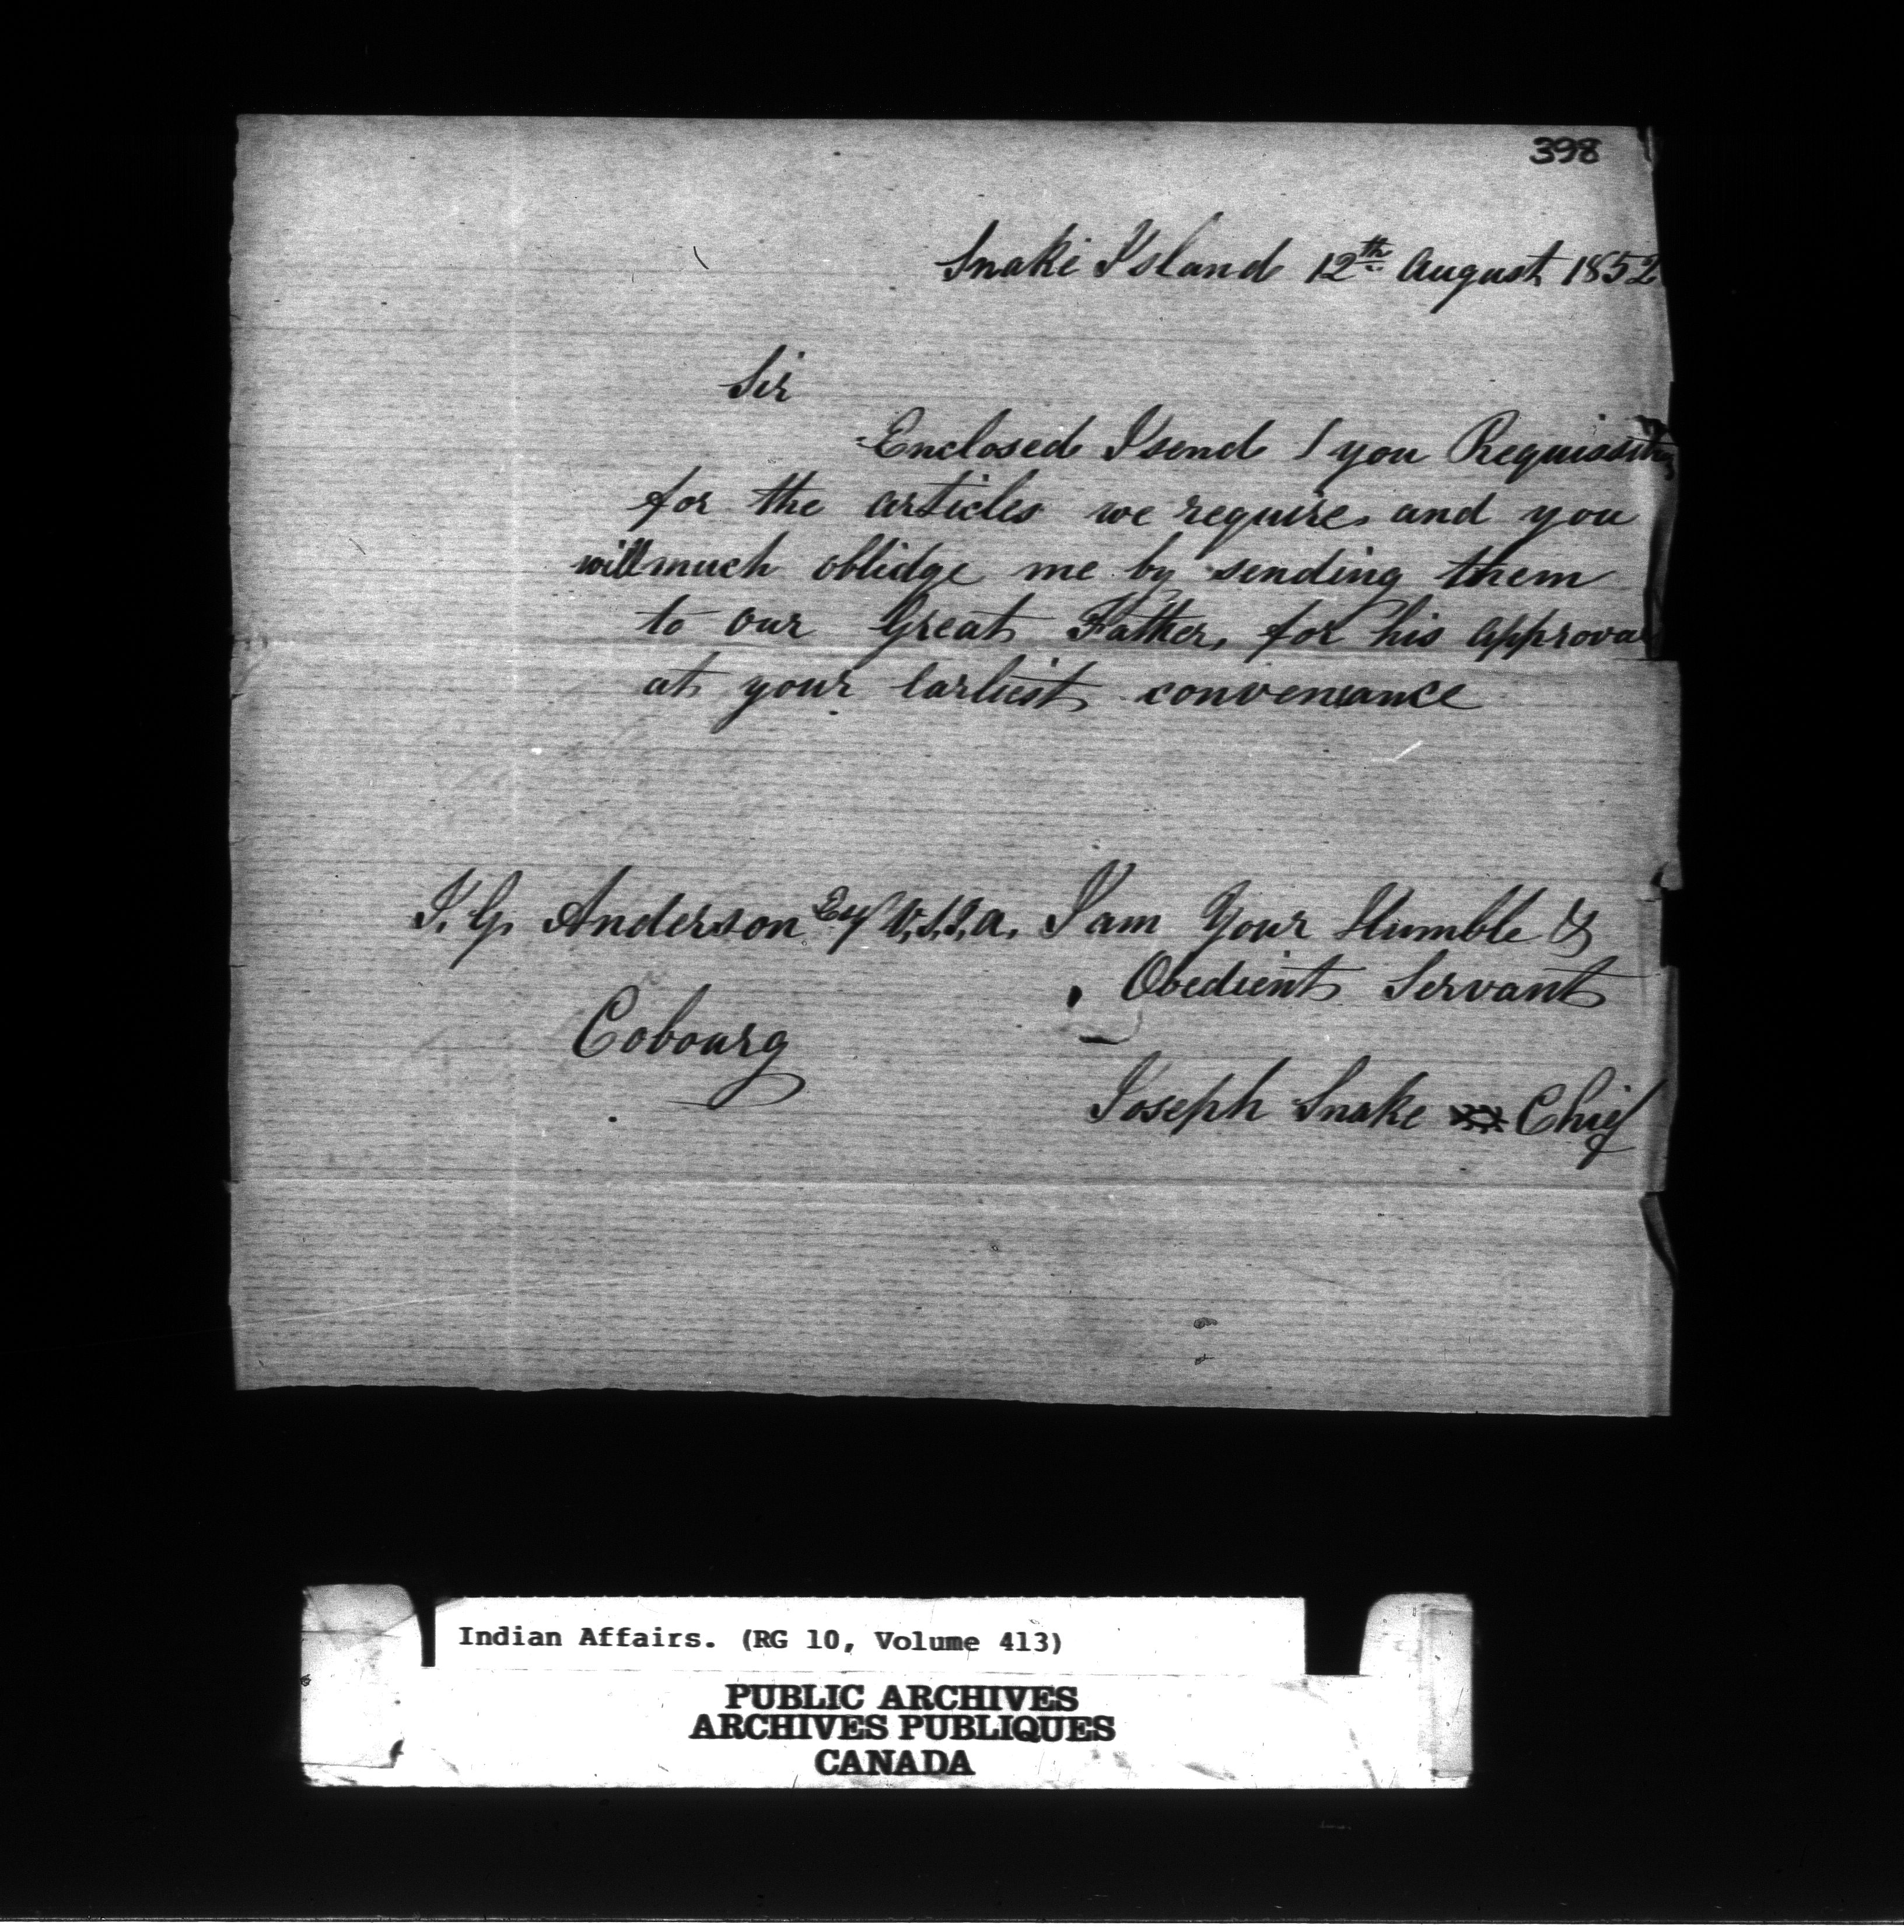 398
Snake Island 12th August 1852
Sir
Enclosed I send / you Requissition
for the articles we require and you
will much oblidge me by sending them
to our Great Father, for his approval
at your earliest conveniance
T. G. Anderson Esq V.S.I.a. I am Your Humble &
Obedient Servant
Cobourg
Joseph Snake Chief
Indian Affairs. (RG 10, Volume 413)
PUBLIC ARCHIVES
ARCHIVES PUBLIQUES
CANADA